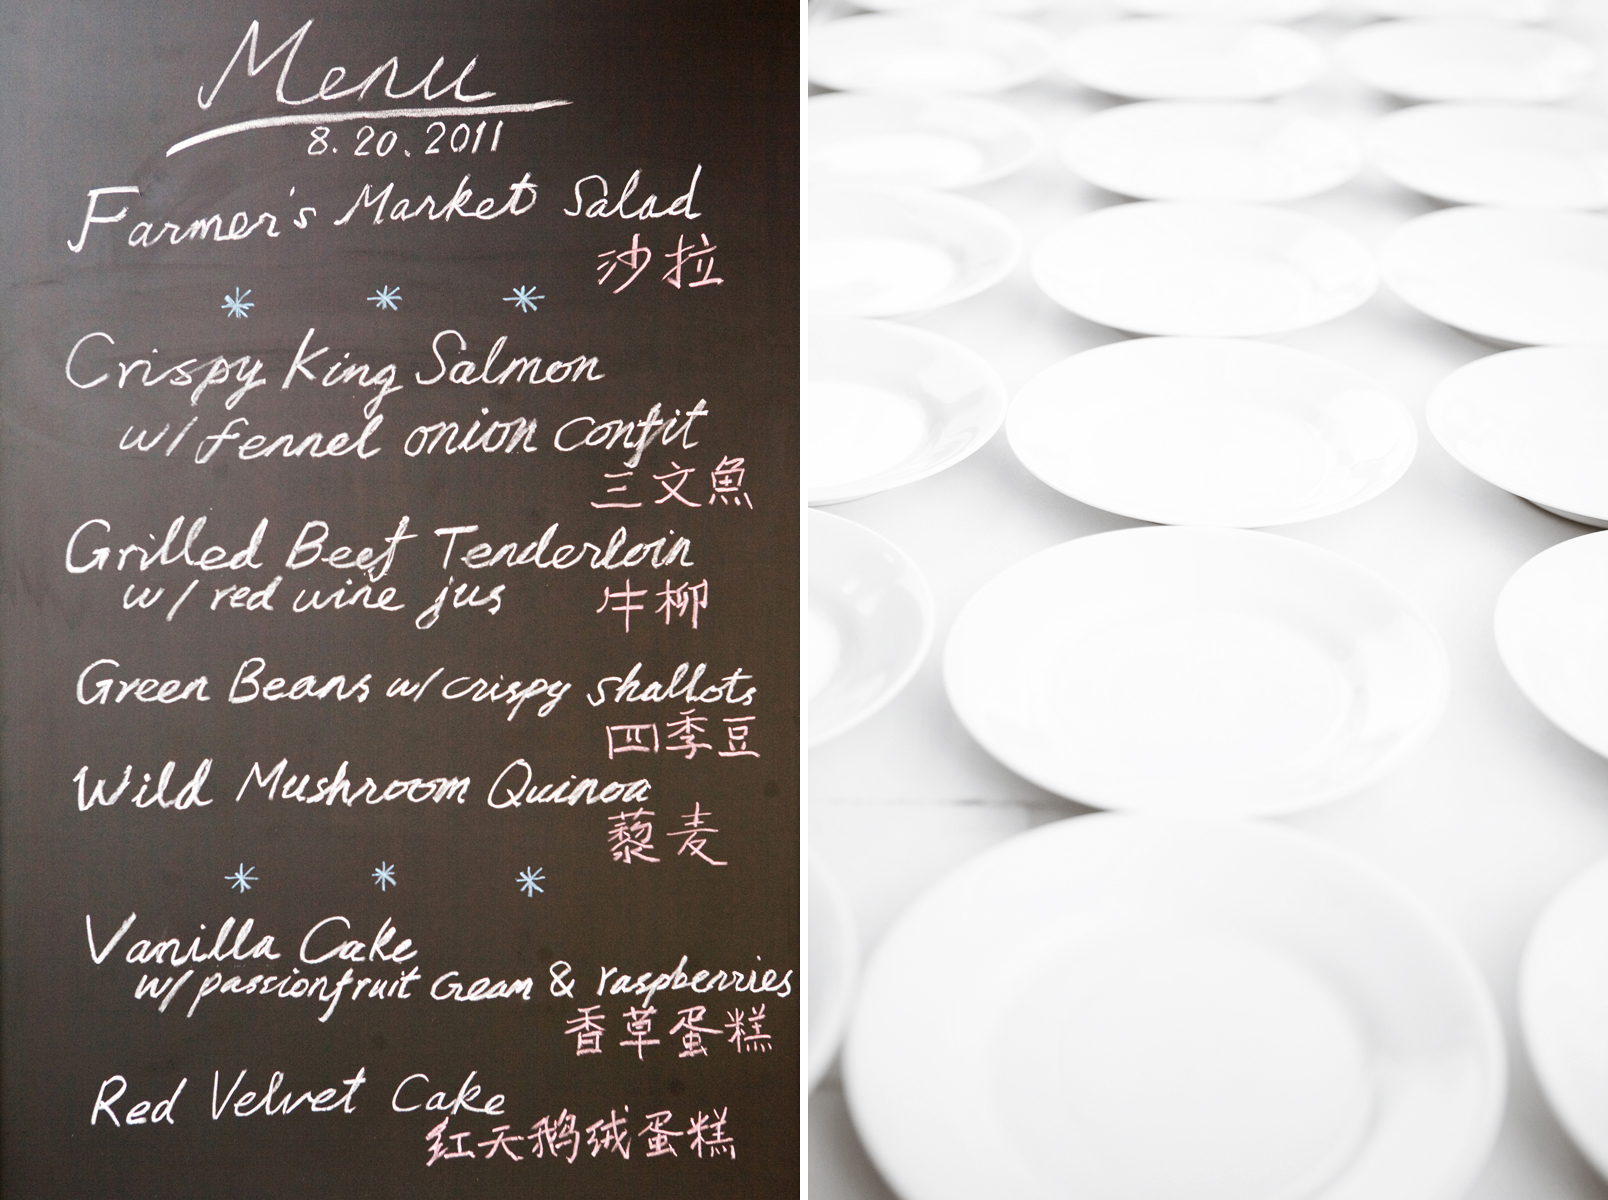 Menu
8.20.2011
Farmer's Market Salad
沙拉
Crispy King Salmon
w/ fennel onion confit
三文魚
Grilled Beef Tenderloin
w/ red wine jus
牛柳
Green Beans w/ crispy shallots
四季豆
Wild Mushroom Quinoa
藜麦
Vanilla Cake
w/ passionfruit cream & raspberries
香草蛋糕
Red Velvet Cake
红天鹅绒蛋糕